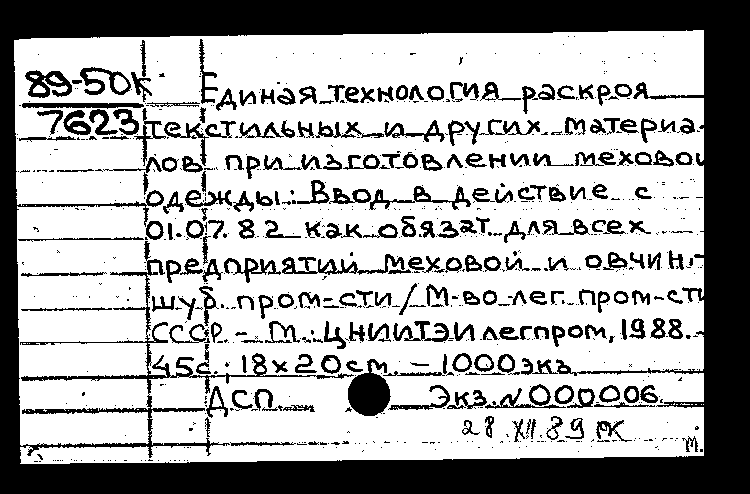 89-50к Единая технология раскроя
7623 текстильных и других материа-
лов при изготовлении меховой
одежды: Ввод в действие с
01.07.82 как обязат. для всех
предприятий меховой и овчин.-
шуб. пром-сти / М-во лег. пром-сти
СССР. – М.: ЦНИИТЭИлегпром, 1988. –
45с.; 18х20см. – 1000экз.
ДСП Экз.№000006.
28.XII.89 РК
м.